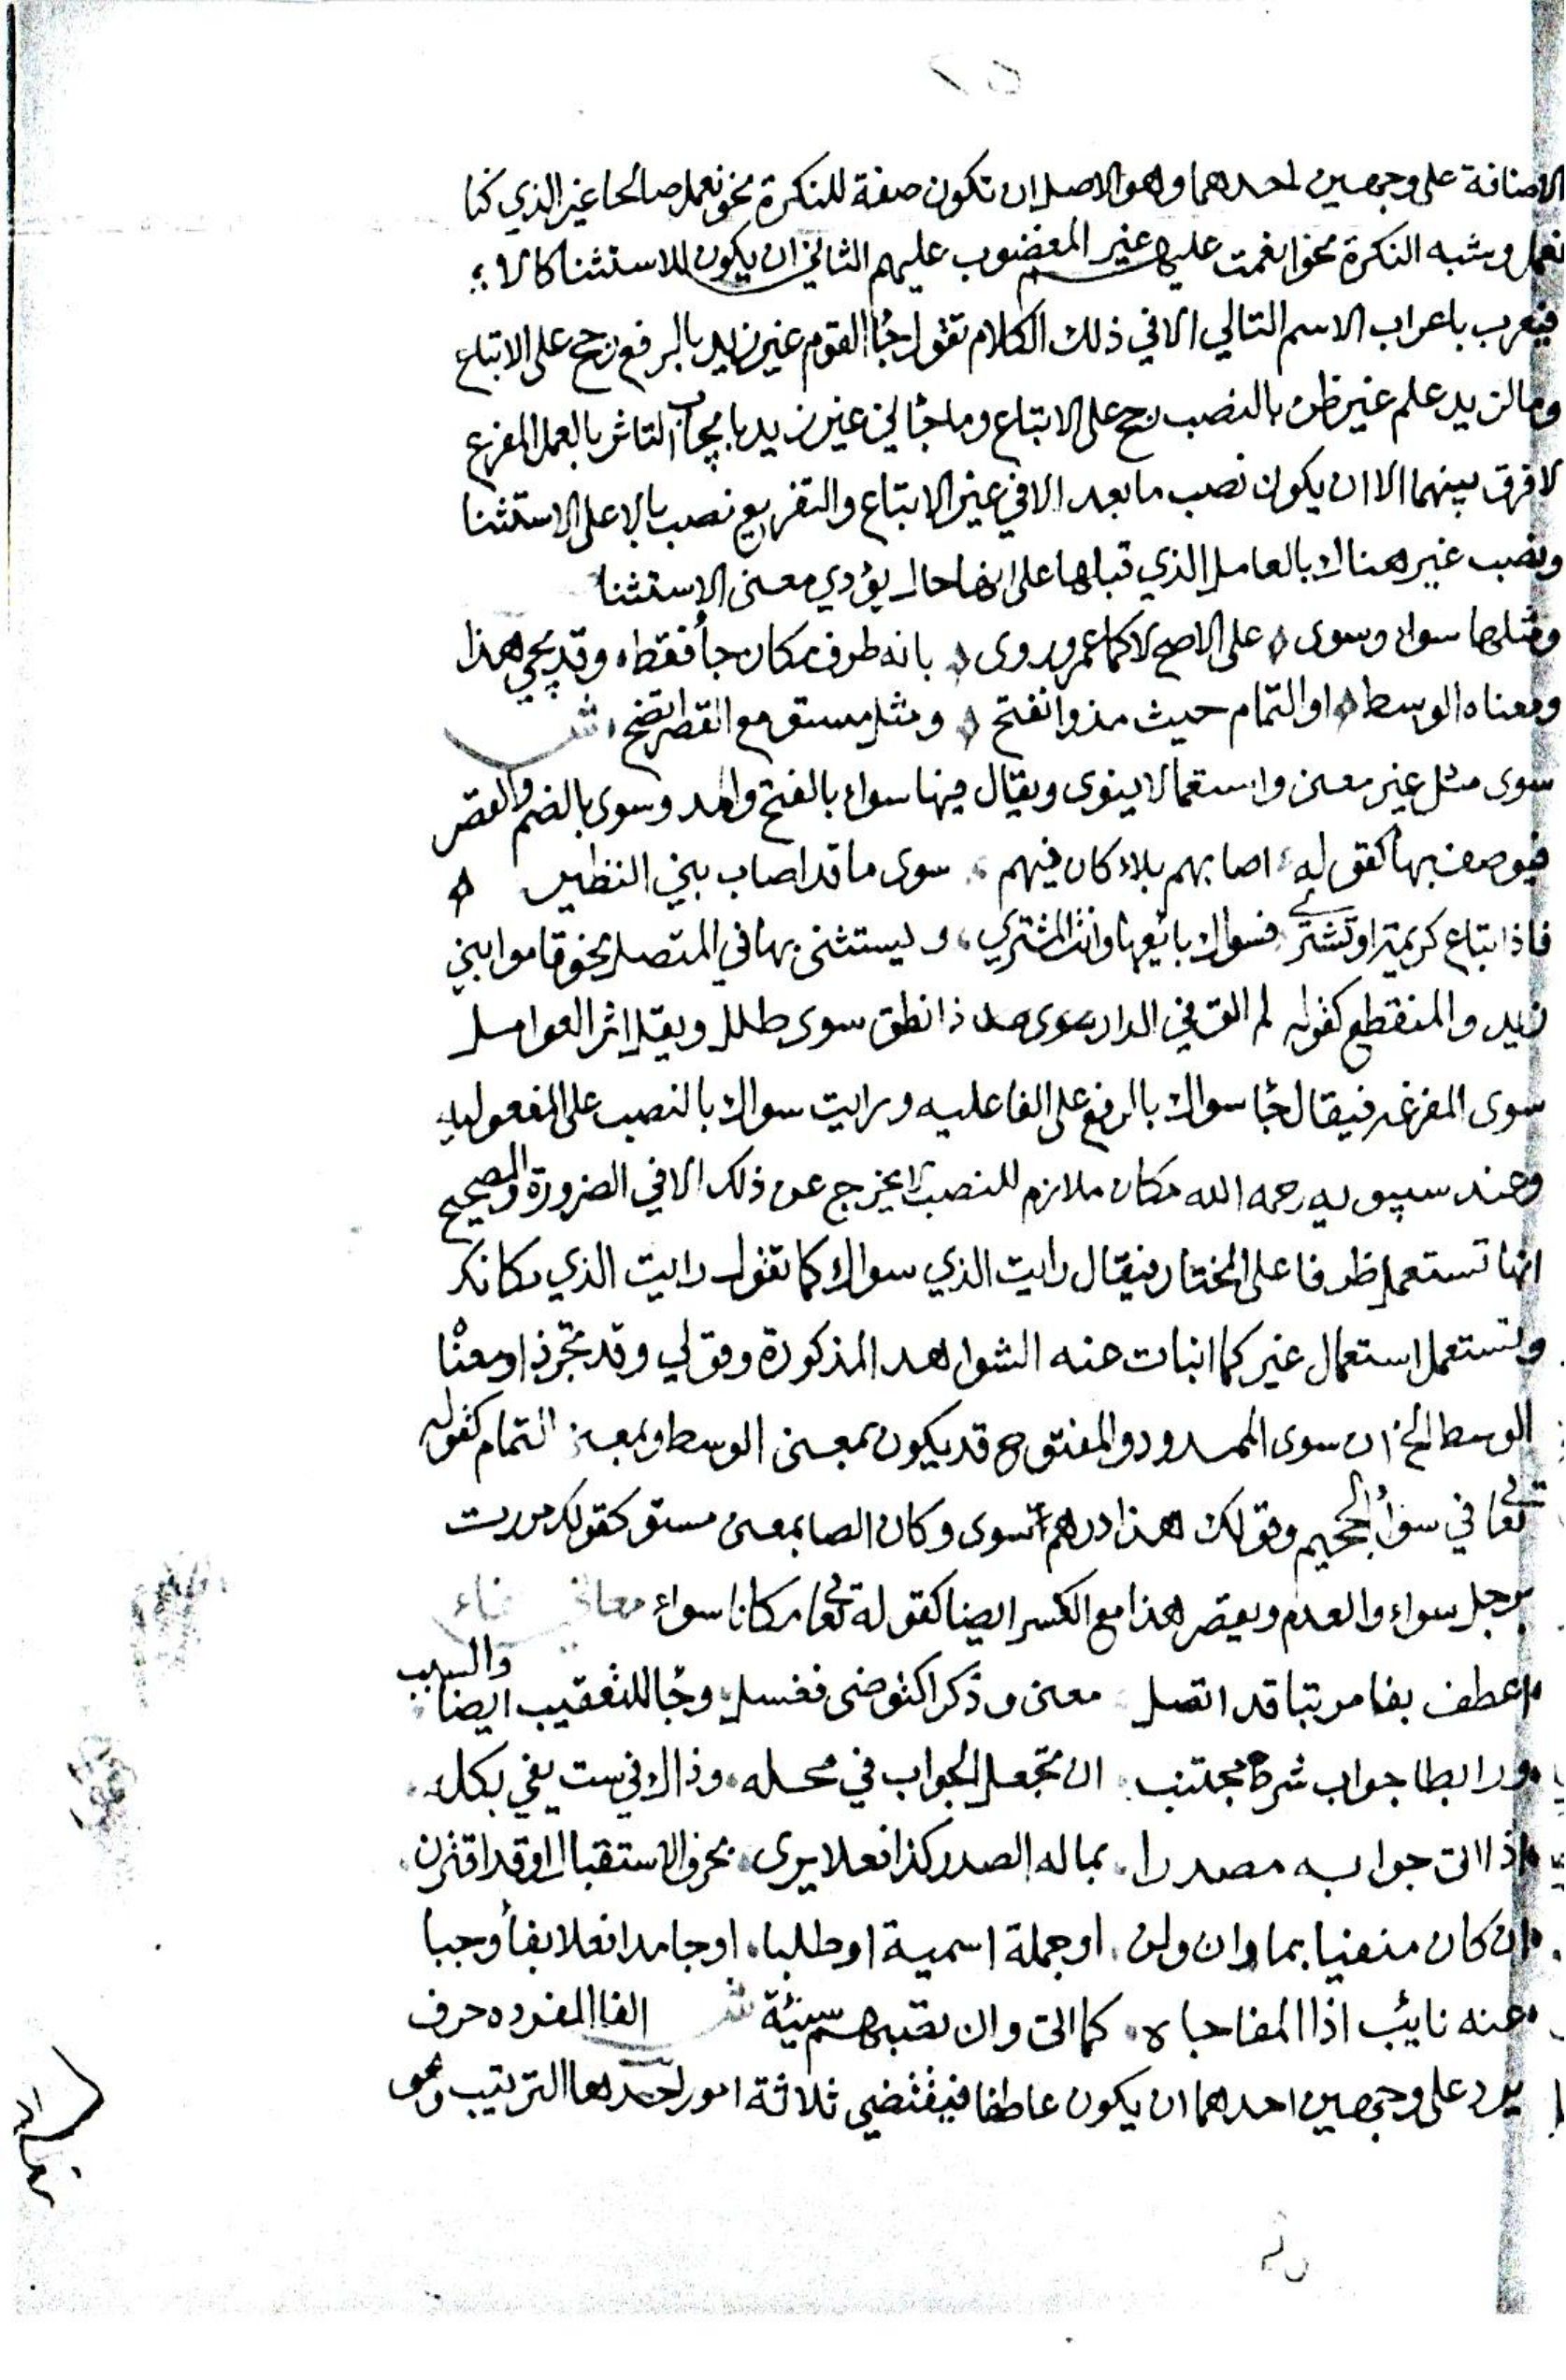 الاضافة على وجهين احدهما وهو الاصل ان تكون صفة للنكرة نحو نعمل صالحا غير الذي كنا
نعمل وشبه النكرة نحو انعمت عليهم غير المغضوب عليهم الثاني ان يكون للاستثنا كالا
فيعرب باعراب الاسم التالي الا في ذلك الكلام تقول جا القوم غير زيد بالرفع رجح على الاتباع
وما لزيد علم غير ظن بالنصب رجح على الاتباع وما جاني غير زيد بايجاب التاثر بالعمل المفرع
لا فرق بينهما الا ان يكون نصب ما بعد الا في غير الاتباع والتفريع نصب بالا على الاستثنا
ونصب غير هناك بالعامل الذي قبلها على انها حال يؤدي معنى الاستثنا
ومثلها سواء وسوى على الاصح لا كما عمرو روى بانه ظرف مكان جا فقط وقد يجي هذا
ومعناه الوسط او التمام حيث مد وانفتح ومثل مستو مع القصر اتضح ش
سوى مثل غير معنى واستعمالا ينوى ويقال فيها سواء بالفتح والمد وسوى بالضم والقصر
فيوصف بها كقوله اصابهم بلاء كان فيهم سوى ما قد اصاب بني النظير
فاذا تباع كريمة او تشترى فسواك بائعها وانت المشتري وليستثنى بها في المتصل نحو قاموا سوى
زيد والمنقطع كقوله لم الق في الدار ذا نطق سوى طلل ويقبل اثر العوامل
سوى المفرغه فيقال جا سواك بالرفع على الفاعليه ورايت سواك بالنصب على المفعوليه
وعند سيبويه رحمه الله مكان ملازم للنصب لا يخرج عن ذلك الا في الضرورة والصحيح
انها تستعمل ظرفا على المختار فيقال رايت الذي سواك كما تقول رايت الذي مكانك
وتستعمل استعمال غير كما انبات عنه الشواهد المذكورة وقولي وقد يجي ذا ومعنا
الوسط الخ ان سوى الممدود والمفتوح قد يكون بمعنى الوسط وبمعنى التمام كقوله
تعالى في سواء الجحيم وقولك هذا درهم سوى وكان ايضا بمعنى مستو كقولك مررت
برجل سواء والعدم ويقصر هذا مع الكسر ايضا كقوله تعالى مكانا سواء معاني فاء
اعطف بفا مرتبا قد اتصل معنى وذكرا كتوضى فغسل وجا للتعقيب ايضا والسبب
ورابطا جواب شرط مجتنب ان تجعل الجواب في محله وذاك في ست يفي بكله
اذا اتى جوابه مصدرا بما له الصدر كذا فعلا يرى بحرف الاستقبال او قد اقترن
ان كان منفيا بما وان ولن او جملة اسمية او طلبا او جامدا فعلا بفا وجبا
عنه نايب اذا المفاجاه كما اتى وان تصبهم سيئة ش الفا المفرده حرف
يرد على وجهين احدهما ان يكون عاطفا فيقتضي ثلاثة امور احدها الترتيب وهو